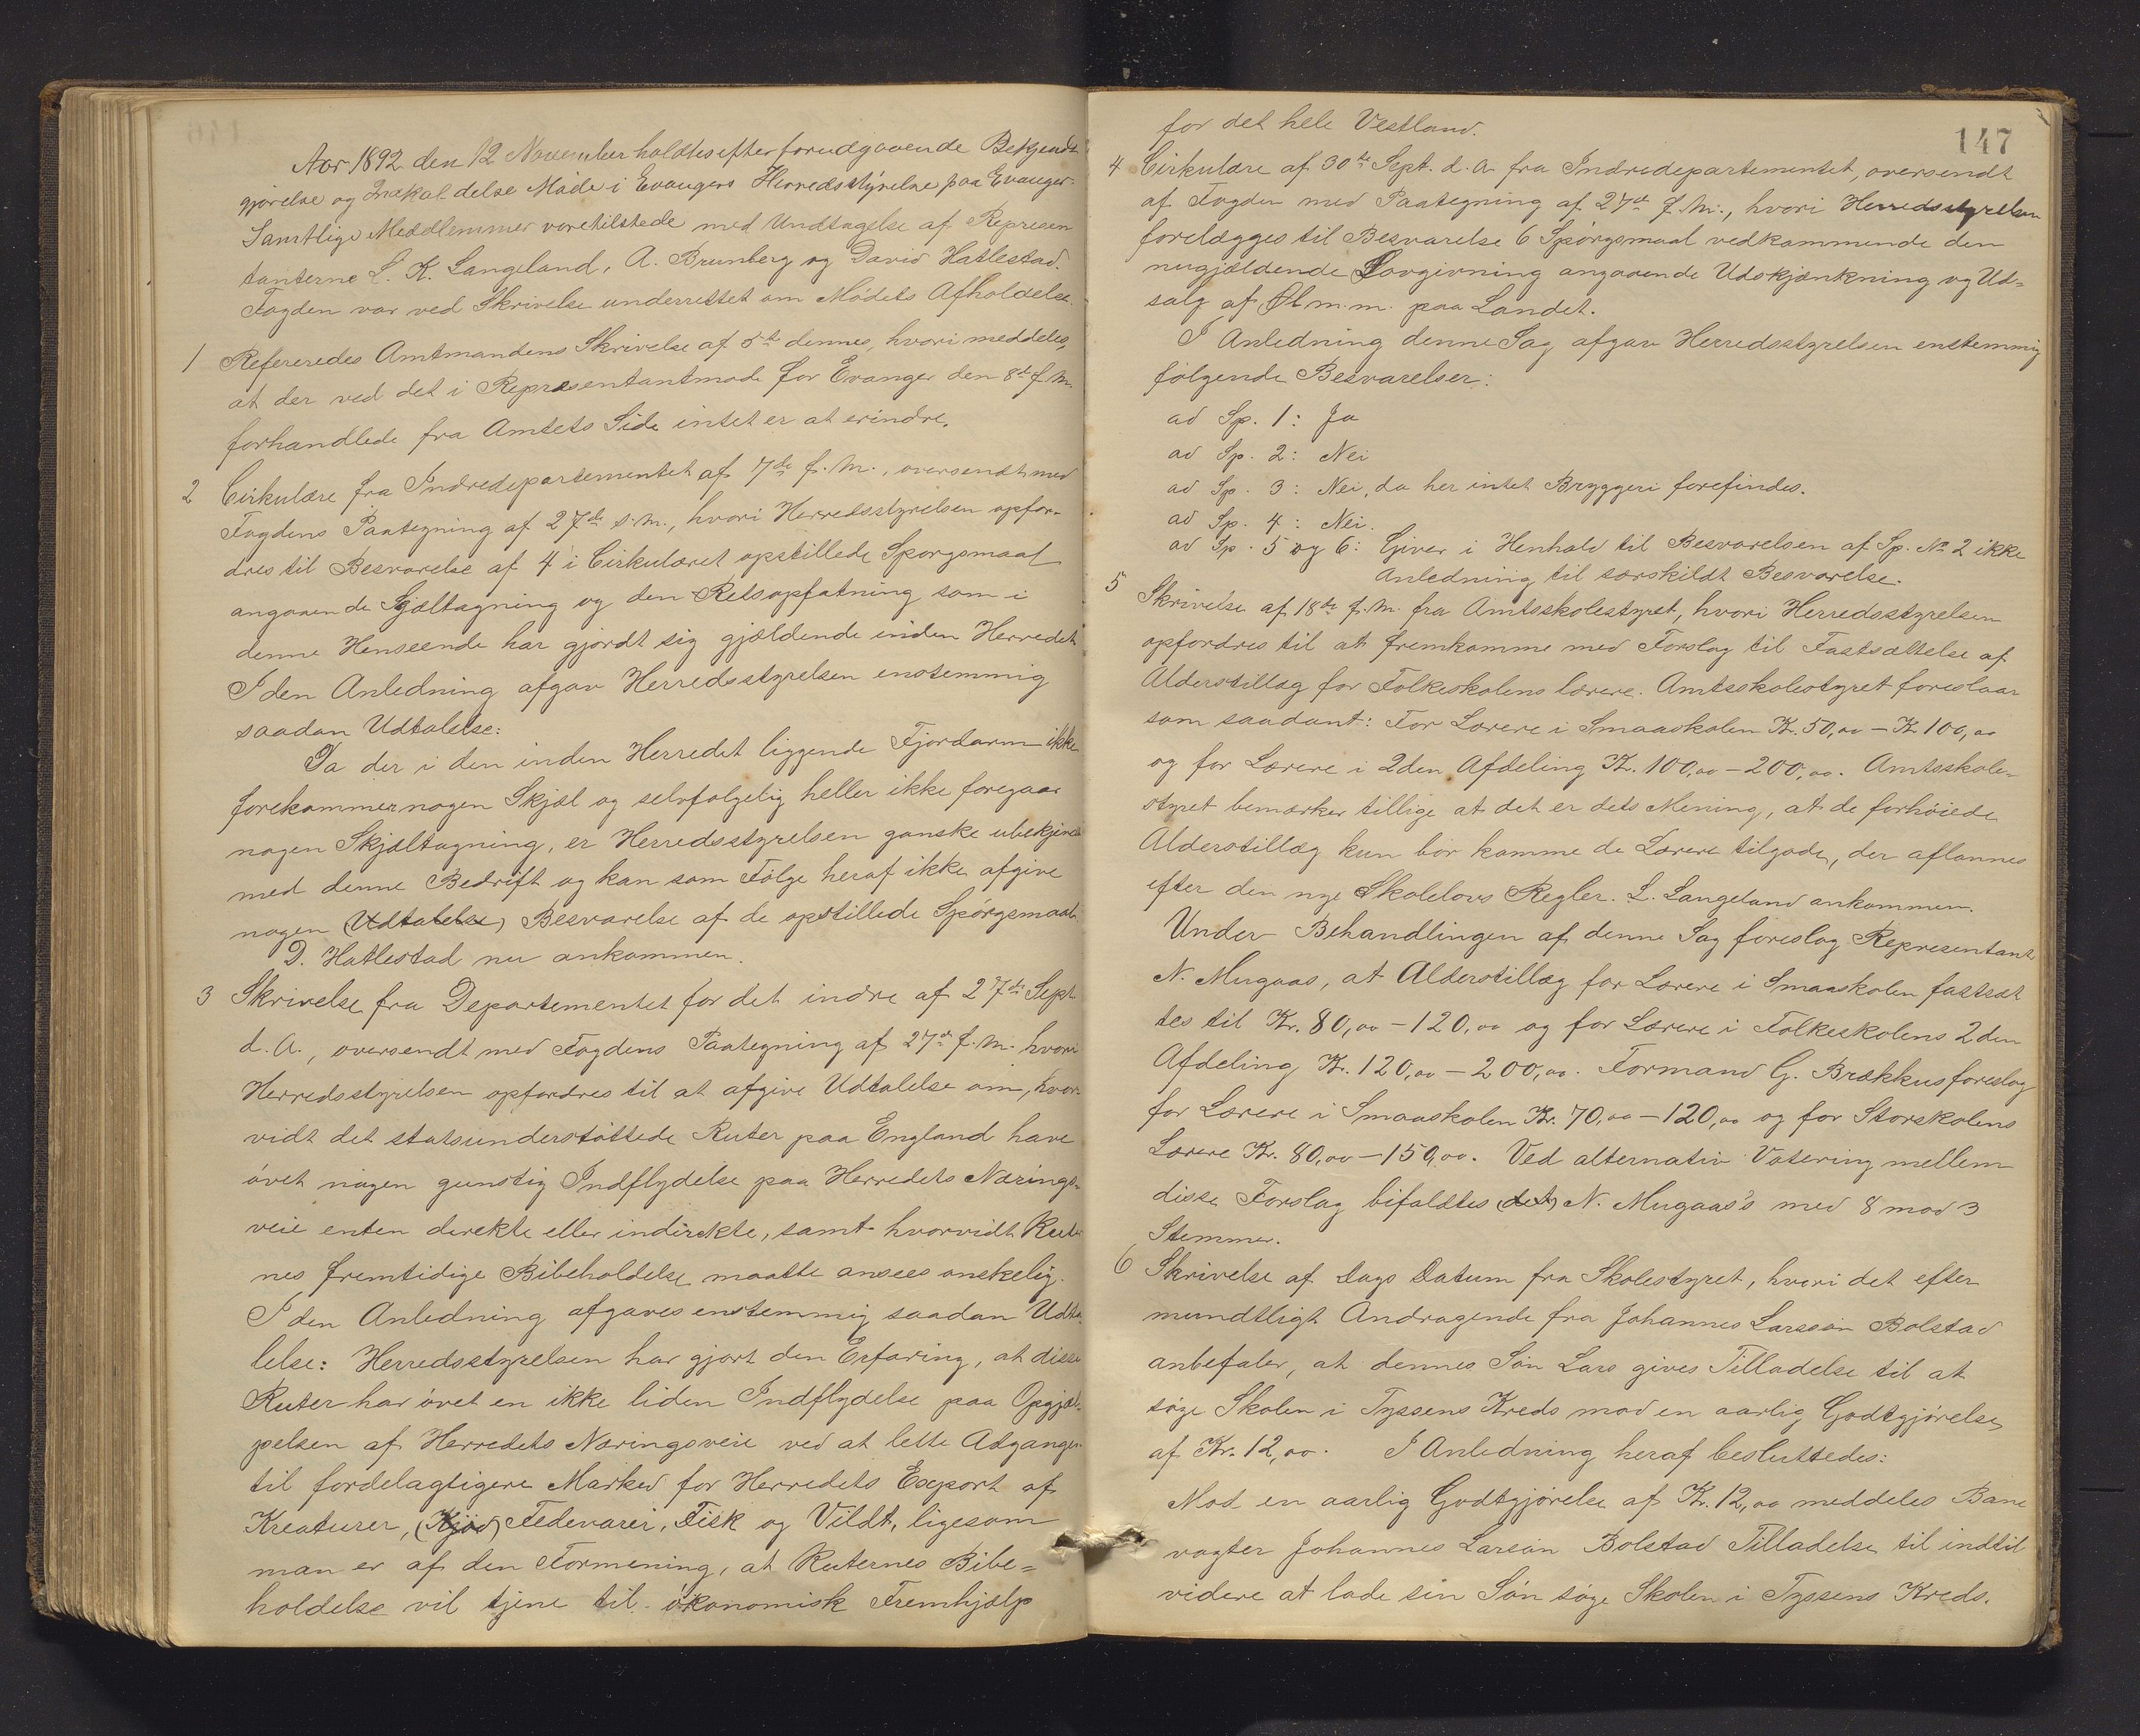 Aar 1892 den 12 November holdtes efter forudgaaende Bekjendt-
gjørelse og Indkaldelse Møde i Evangers Herredsstyrelse paa Evanger.
Samtlige Meddlemmer vare tilstede med Undtagelse af Represen
tanterne L. K. Langeland, A. Brunberg og David Hatlestad.
Fogden var ved Skrivelse underrettet om Mødets Afholdelse.
1 Refereredes Amtmandens Skrivelse af 5te dennes, hvori meddeles,
at der ved det i Representantmøde for Evanger den 8de f. M.
forhandlede fra Amtets Side intet er at erindre.
2 Cirkulære fra Indredepartementet af 7de f. M., oversendt med
Fogdens Paategning af 27de s. M., hvori Herredsstyrelsen opfor-
dres til Besvarelse af 4 i Cirkulæret opstillede Spørgsmaal
angaaende Sjæltagning og den Retsopfatning som i
denne Henseende har gjørdt sig gjældende inden Herredet
I den Anledning afgav Herredsstyrelsen enstemmig
saadan Udtalelse:
Da der i den inden Herredet liggende Fjordarm ikke
forekommer nogen Skjæl og selvfølgelig heller ikke foregaar
nogen Skjæltagning, er Herredsstyrelsen ganske ubekjendt
med denne Bedrift og kan som Følge heraf ikke afgive
nogen (Udtalelse) Besvarelse af de opstillede Spørgsmaal.
D. Hatlestad nu ankommen.
3 Skrivelse fra Departementet for det indre af 27de Sept
d. A., oversendt med Fogdens Paategning af 27de f. M. hvori
Herredsstyrelsen opfordres til at afgive Udtalelse om, hvor-
vidt det statsunderstøttede Ruter paa England have
øvet nogen gunstig Indflydelse paa Herredets Nærings-
veie enten direkte eller indirekte, samt hvorvidt Ruter
nes fremtidige Bibeholdelse maatte ansees ønskelig.
I den Anledning afgaves enstemmig saadan Udta
lelse: Herredsstyrelsen har gjort den Erfaring, at disse
Ruter har øvet en ikke liden Indflydelse paa Opgjæl-
pelsen af Herredets Næringsveie ved at lette Adgangen
til fordelagtigere Marked for Herredets Export af
Kreaturer, (Kjød) Fedevarer, Fisk og Vildt, ligesom
man er af den Formening, at Ruternes Bibe=
holdelse vil tjene til økonomisk Fremhjælp
147
for det hele Vestland.
4 Cirkulære af 30te Sept. d. A. fra Indredepartementet, oversendt
af Fogden med Paategning af 27de f. M., hvori Herredsstyrelsen
forelægges til Besvarelse 6 Spørgsmaal vedkommende den
nugjældende Lovgivning angaaende Udskjænkning og Ud=
salg af Øl m. m. paa Landet.
I Anledning denne Sag afgav Herredsstyrelsen enstemmig
følgende Besvarelser:
ad Sp. 1: Ja
ad Sp. 2: Nei
ad Sp. 3: Nei, da her intet Bryggeri forefindes.
ad Sp. 4: Nei.
ad Sp. 5 og 6: Giver i Henhold til Besvarelsen af Sp. No 2 ikke
Anledning til særskildt Besvarelse.
5 Skrivelse af 18de f. M. fra Amtsskolestyret, hvori Herredsstyrelsen
opfordres til at fremkomme med Forslag til Fastsættelse af
Alderstillæg for Folkeskolens lærere. Amtsskolestyret foreslaar
som saadant: For Lærere i Smaaskolen Kr. 50,00 – Kr 100,00
og for Lærere i 2den Afdeling Kr. 100,00 – 200,00. Amtsskole-
styret bemærker tillige at det er dets Mening, at de forhøiede
Alderstillæg kun bør komme de Lærere tilgode, der aflønnes
efter den nye Skolelovs Regler. L. Langeland ankommen.
Under Behandlingen af denne Sag foreslog Representant
N. Mugaas, at Alderstillæg for Lærere i Smaaskolen fastsæt
tes til Kr. 80,00 – 120,00 og for Lærere i Folkeskolens 2den
Afdeling Kr. 120,00 – 200,00. Formand G. Brækkus foreslog
for Lærere i Smaaskolen Kr. 70,00 – 120,00 og for Storskolens
Lærere Kr. 80,00 – 150,00. Ved alternativ Votering mellem
disse Forslag bifaldtes (det) N. Mugaas's med 8 mod 3
Stemmer.
6 Skrivelse af Dags Datum fra Skolestyret, hvori det efter
mundtligt Andragende fra Johannes Larssøn Bolstad
anbefaler, at dennes Søn Lars gives Tilladelse til at
søge Skolen i Tyssens Kreds mod en aarlig Godtgjørelse
af Kr. 12,00. I Anledning heraf besluttedes:
Mod en aarlig Godtgjørelse af Kr. 12,00 meddeles Bane
vogter Johannes Larsøn Bolstad Tilladelse til indtil
videre at lade sin Søn søge Skolen i Tyssens Kreds.